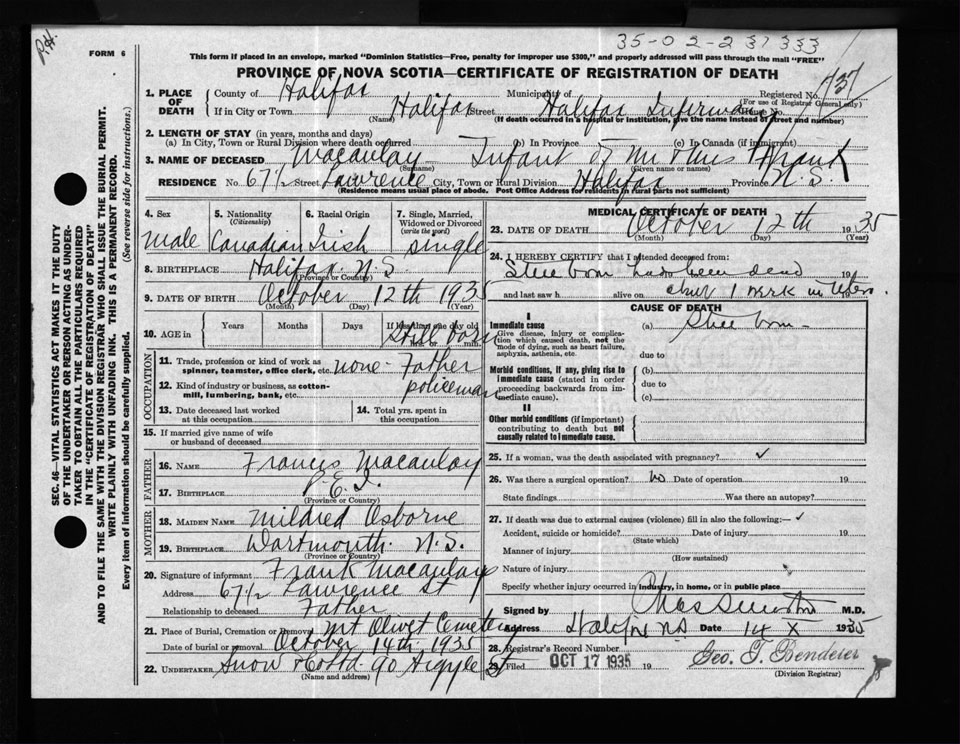 P.H.
FORM 6
35-02-2 37333
This form if placed in an envelope, marked "Dominion Statistics—Free, penalty for improper use $300," and properly addressed will pass through the mail "FREE"
PROVINCE OF NOVA SCOTIA—CERTIFICATE OF REGISTRATION OF DEATH
SEC. 46—VITAL STATISTICS ACT MAKES IT THE DUTY
OF THE UNDERTAKER OR PERSON ACTING AS UNDER-
TAKER TO OBTAIN ALL THE PARTICULARS REQUIRED
IN THE "CERTIFICATE OF REGISTRATION OF DEATH"
AND TO FILE THE SAME WITH THE DIVISION REGISTRAR WHO SHALL ISSUE THE BURIAL PERMIT.
WRITE PLAINLY WITH UNFADING INK. THIS IS A PERMANENT RECORD.
Every item of information should be carefully supplied. (See reverse side for instructions.)
1. PLACE OF DEATH County of Halifax Municipality of Registered No. 737
(For use of Registrar General only)
If in City or Town Halifax Street Halifax Infirmary House No.
(Name) (If death occurred in a hospital or institution, give the name instead of street and number)
2. LENGTH OF STAY (in years, months and days)
(a) In City, Town or Rural Division where death occurred (b) In Province (c) In Canada (if immigrant)
3. NAME OF DECEASED Macaulay Infant of Mr & Mrs Frank
(Surname) (Given name or names)
RESIDENCE No. 67½ Street Lawrence City, Town or Rural Division Halifax Province N.S.
(Residence means usual place of abode. Post Office Address for residents in rural parts not sufficient)
4. Sex 5. Nationality (Citizenship) 6. Racial Origin 7. Single, Married, Widowed or Divorced (write the word)
Male Canadian Irish single
8. BIRTHPLACE Halifax N.S.
(Province or Country)
9. DATE OF BIRTH October 12th 1935
(Month) (Day) (Year)
10. AGE in Years Months Days If less than one day old
Still born
hrs. or min.
OCCUPATION
11. Trade, profession or kind of work as spinner, teamster, office clerk, etc. none - Father
12. Kind of industry or business, as cotton-mill, lumbering, bank, etc. policeman
13. Date deceased last worked at this occupation 14. Total yrs. spent in this occupation
15. If married give name of wife or husband of deceased
FATHER
16. NAME Francis Macaulay
17. BIRTHPLACE P.E.I.
(Province or Country)
MOTHER
18. MAIDEN NAME Mildred Osborne
19. BIRTHPLACE Dartmouth N.S.
(Province or Country)
20. Signature of informant Frank Macaulay
Address 67½ Lawrence St
Relationship to deceased Father
21. Place of Burial, Cremation or Removal Mt Olivet Cemetery
Date of burial or removal October 14th 1935
22. UNDERTAKER Snow & Co Ltd 90 Argyle St
(Name and address)
MEDICAL CERTIFICATE OF DEATH
23. DATE OF DEATH October 12th 1935
(Month) (Day) (Year)
24. I HEREBY CERTIFY that I attended deceased from:
Still born had been dead 19
and last saw h alive on about 1 week in utero.
CAUSE OF DEATH
I
Immediate cause (a) Still born -
Give disease, injury or complication which caused death, not the mode of dying, such as heart failure, asphyxia, asthenia, etc.
due to
Morbid conditions, if any, giving rise to immediate cause (stated in order proceeding backwards from immediate cause). (b)
due to
(c)
II
Other morbid conditions (if important) contributing to death but not causally related to immediate cause.
25. If a woman, was the death associated with pregnancy? ✓
26. Was there a surgical operation? No Date of operation 19
State findings Was there an autopsy?
27. If death was due to external causes (violence) fill in also the following:— ✓
Accident, suicide or homicide? Date of injury 19
(State which)
Manner of injury
(How sustained)
Nature of injury
Specify whether injury occurred in industry, in home, or in public place
Signed by M.D.
Address Halifax N.S Date 14 X 1935
28. Registrar's Record Number
29. Filed OCT 17 1935 19 Geo. T. Bendeier
(Division Registrar)